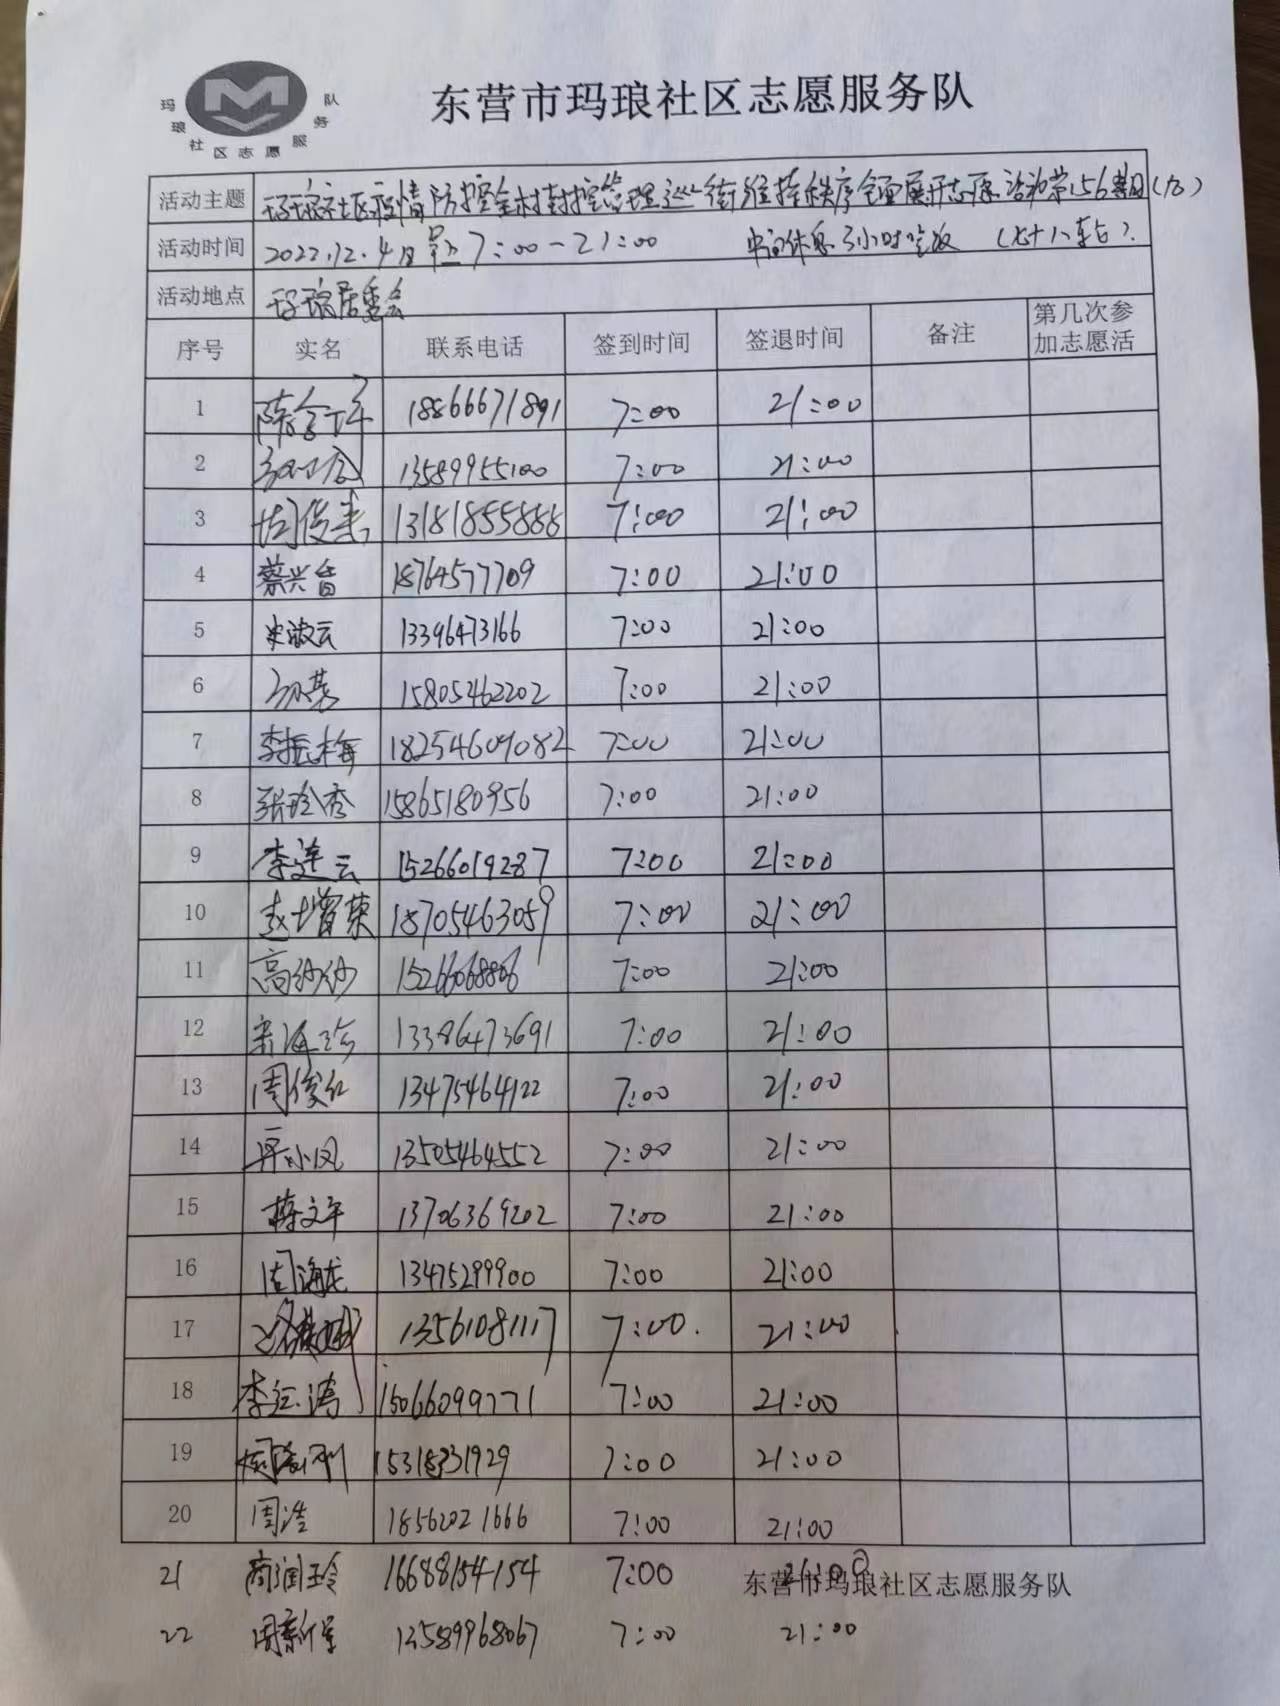 玛琅社区志愿服务队
东营市玛琅社区志愿服务队
活动主题 玛琅社区疫情防控全村封控管理巡街维持秩序全面展开志愿活动第156期(九)
活动时间 2022.12.4日 早上7:00-21:00 中间休息3小时吃饭
活动地点 玛琅居委会
序号 实名 联系电话 签到时间 签退时间 备注 第几次参加志愿活
1 18866671891 7:00 21:00
2 13589955100 7:00 21:00
3 周俊 13181855888 7:00 21:00
4 蔡兴 18764577709 7:00 21:00
5 宋淑云 13396473166 7:00 21:00
6 15805462202 7:00 21:00
7 李振梅 18254609082 7:00 21:00
8 张玲秀 15865180956 7:00 21:00
9 李莲云 15266019287 7:00 21:00
10 赵增荣 18705463059 7:00 21:00
11 高纱纱 15266068806 7:00 21:00
12 海珍 13386473691 7:00 21:00
13 周俊红 13475464122 7:00 21:00
14 小凤 13505464552 7:00 21:00
15 文军 13706369202 7:00 21:00
16 周海龙 13475299900 7:00 21:00
17 13561081117 7:00. 21:00
18 李江涛 15066099771 7:00 21:00
19 周 刚 15318331929 7:00 21:00
20 周浩 18562021666 7:00 21:00
21 商润玲 16688154154 7:00 21:00
东营市玛琅社区志愿服务队
22 周新 13589968067 7:00 21:00